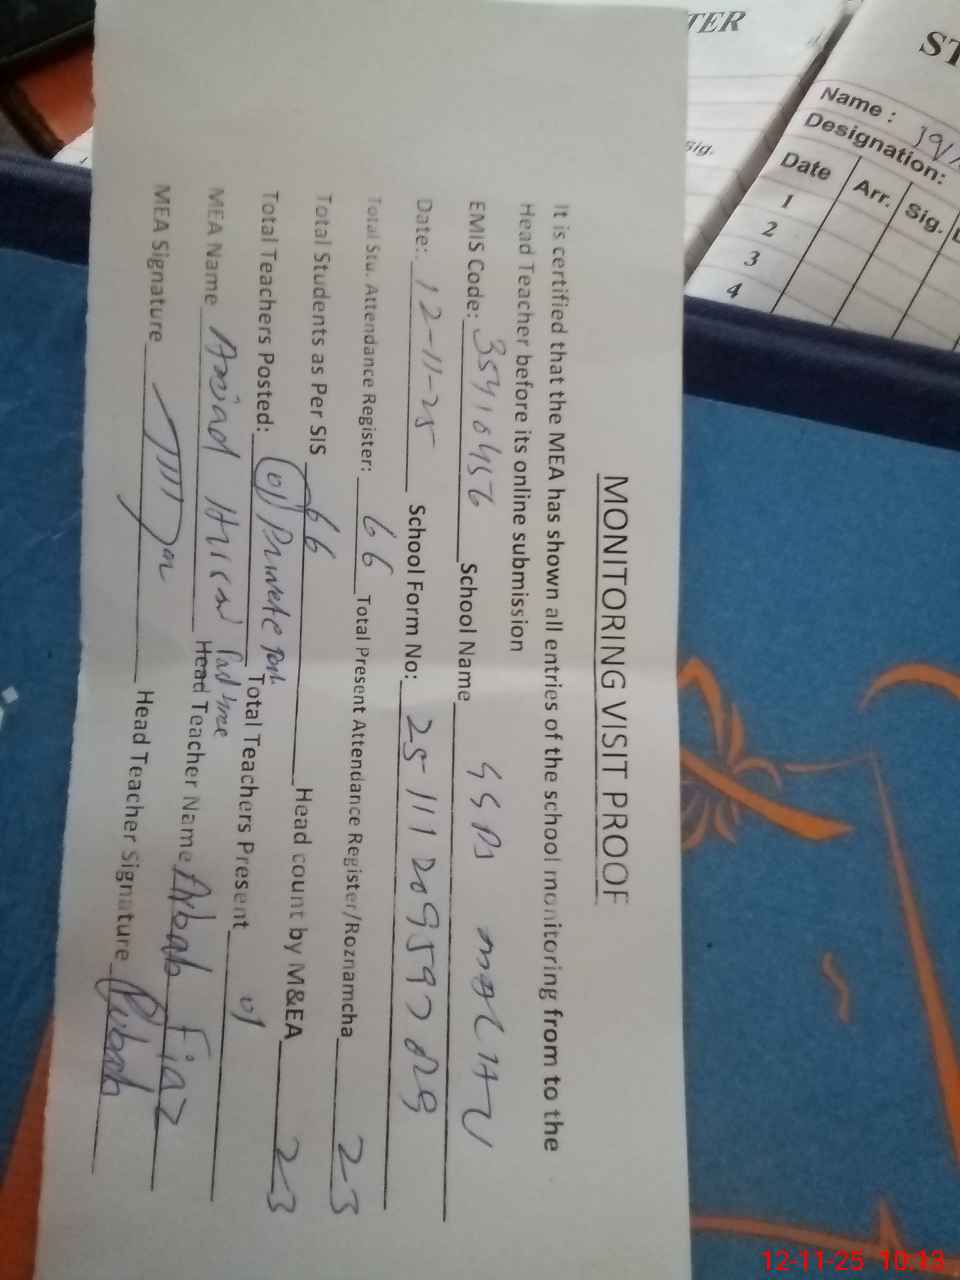 MONITORING VISIT PROOF
It is certified that the MEA has shown all entries of the school monitoring from to the
Head Teacher before its online submission
EMIS Code: 35410456 School Name
Date: 12-11-25 School Form No: 25111209597029
Total Stu. Attendance Register: 66 Total Present Attendance Register/Roznamcha 23
Total Students as Per SIS 66 Head count by M&EA 23
Total Teachers Posted: 01 Total Teachers Present 01
MEA Name Head Teacher Name Arbab Fiaz
MEA Signature Head Teacher Signature Arbab
TER
sig.
ST
Name :
Designation:
Date Arr. Sig.
1
2
3
4
12-11-25 10:13